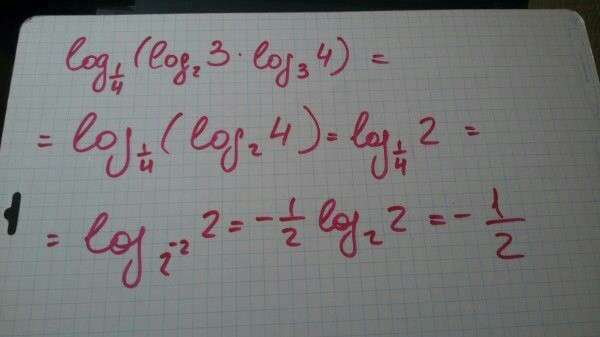 log_{1/4}(log_2 3 · log_3 4) =
= log_{1/4}(log_2 4) = log_{1/4} 2 =
= log_{2^{-2}} 2 = -1/2 log_2 2 = -1/2